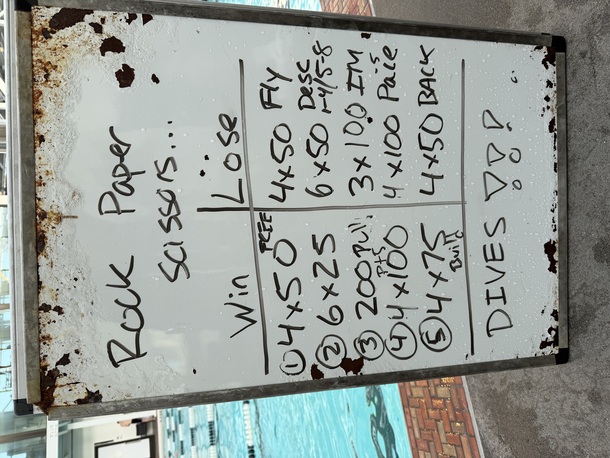 Rock Paper
Scissors...
Win Lose
① 4x50 FREE 4x50 Fly
② 6x25 6x50 Desc 1-4/5-8
③ 200 Pull 3x100 IM
④ 4x100 4x100 Pace
⑤ 4x75 Build 4x50 BACK
DIVES